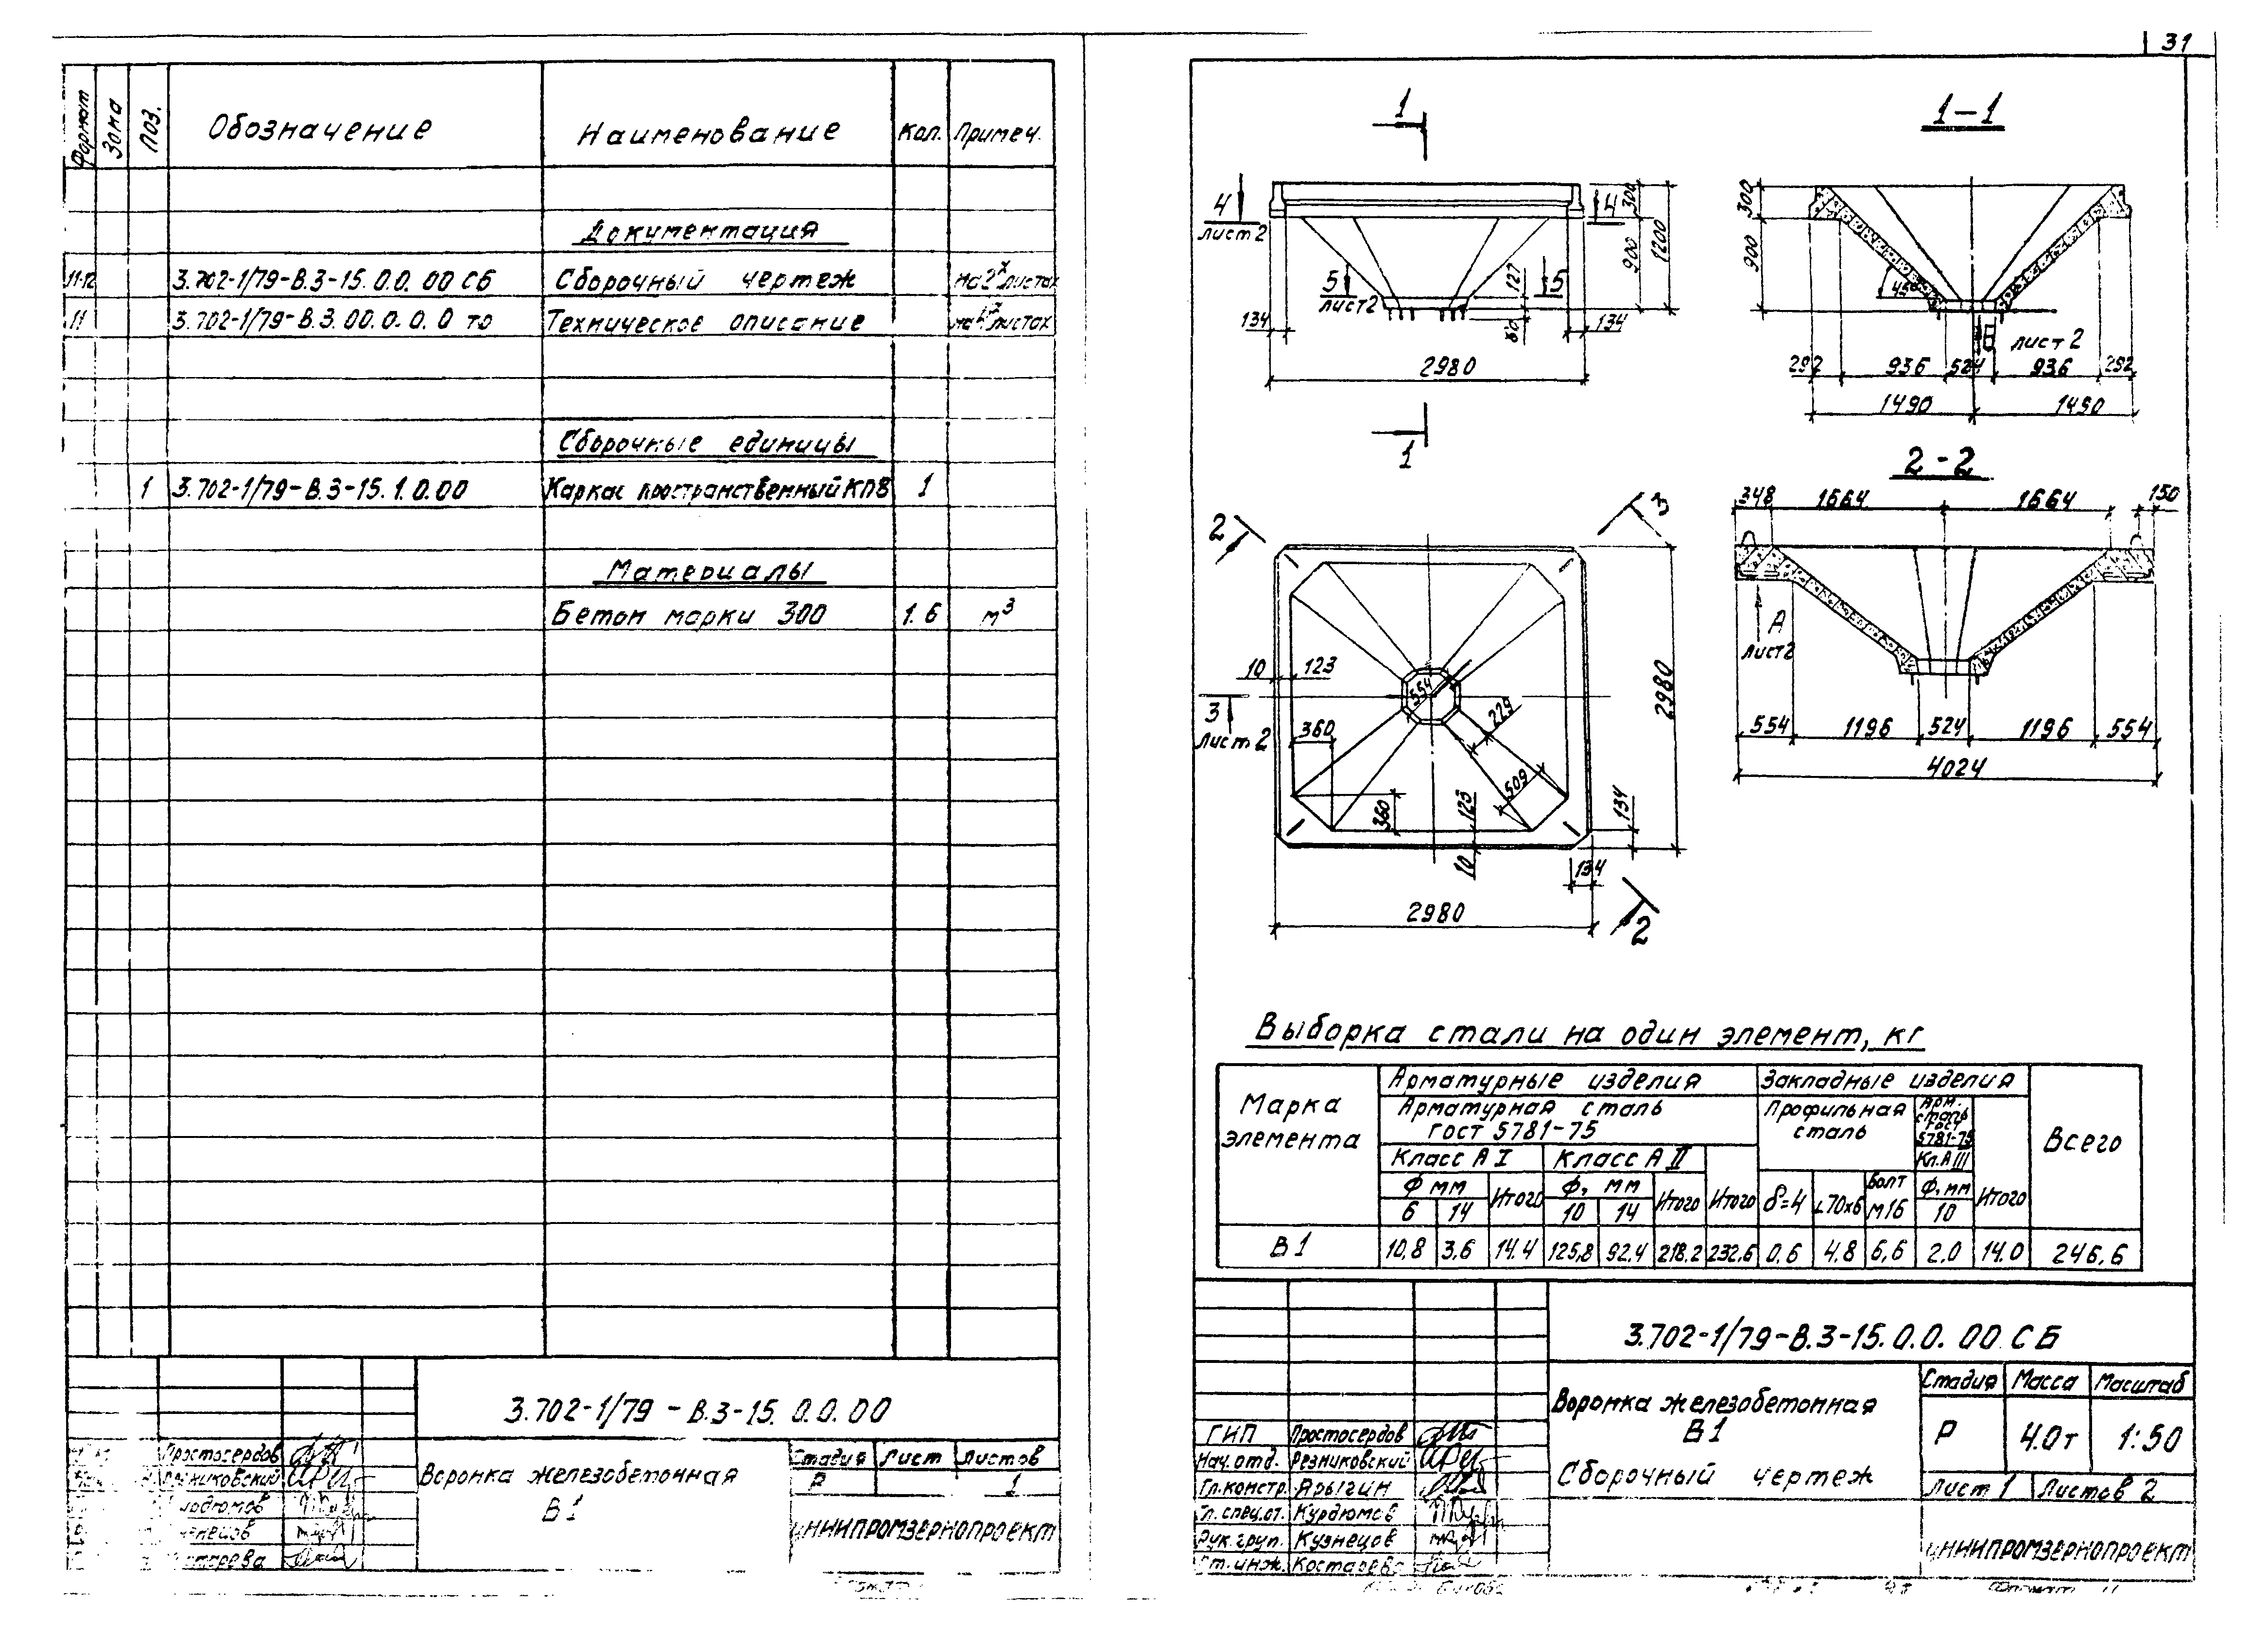 31
Формат Зона Поз. Обозначение Наименование Кол. Примеч.
Документация
11-12 3.702-1/79-В.3-15.0.0.00 СБ Сборочный чертеж на 2х листах
11 3.702-1/79-В.3.00.0.0.0 ТО Техническое описание листах
Сборочные единицы
1 3.702-1/79-В.3-15.1.0.00 Каркас пространственный КП8 1
Материалы
Бетон марки 300 1.6 м³
3.702-1/79-В.3-15.0.0.00
Простосердов
Воронка железобетонная
В1
Стадия Лист Листов
Р 1
ЦНИИПРОМЗЕРНОПРОЕКТ
1
4
лист 2
4
5
лист 2
5
300
900
1200
127
60
134
134
2980
1
1-1
300
900
45°
Б
лист 2
292 936 524 936 292
1490 1490
2-2
348 1664 1664 150
А
лист 2
554 1196 524 1196 554
4024
2
3
10 123
554
3
лист 2
360
229
509
360
123
10
134
134
2980
2980
2
Выборка стали на один элемент, кг
Марка элемента
Арматурные изделия
Закладные изделия
Всего
Арматурная сталь
ГОСТ 5781-75
Профильная сталь
Арм. сталь ГОСТ 5781-75
Класс АI Класс АII Кл.АIII
Ф мм Итого Ф, мм Итого Итого δ=4 ∟70х6 Болт М16 Ф, мм Итого
6 14 10 14 10
В1 10,8 3,6 14.4 125,8 92,4 218.2 232,6 0,6 4,8 6,6 2.0 14.0 246,6
3.702-1/79-В.3-15.0.0.00 СБ
Воронка железобетонная
В1
Сборочный чертеж
Стадия Масса Масштаб
Р 4.0т 1:50
Лист 1 Листов 2
ЦНИИПРОМЗЕРНОПРОЕКТ
ГИП Простосердов
Нач.отд. Резниковский
Гл.констр. Ярыгин
Гл.спец.от. Курдюмов
Рук.груп. Кузнецов
Ст.инж. Костарева
Формат 11